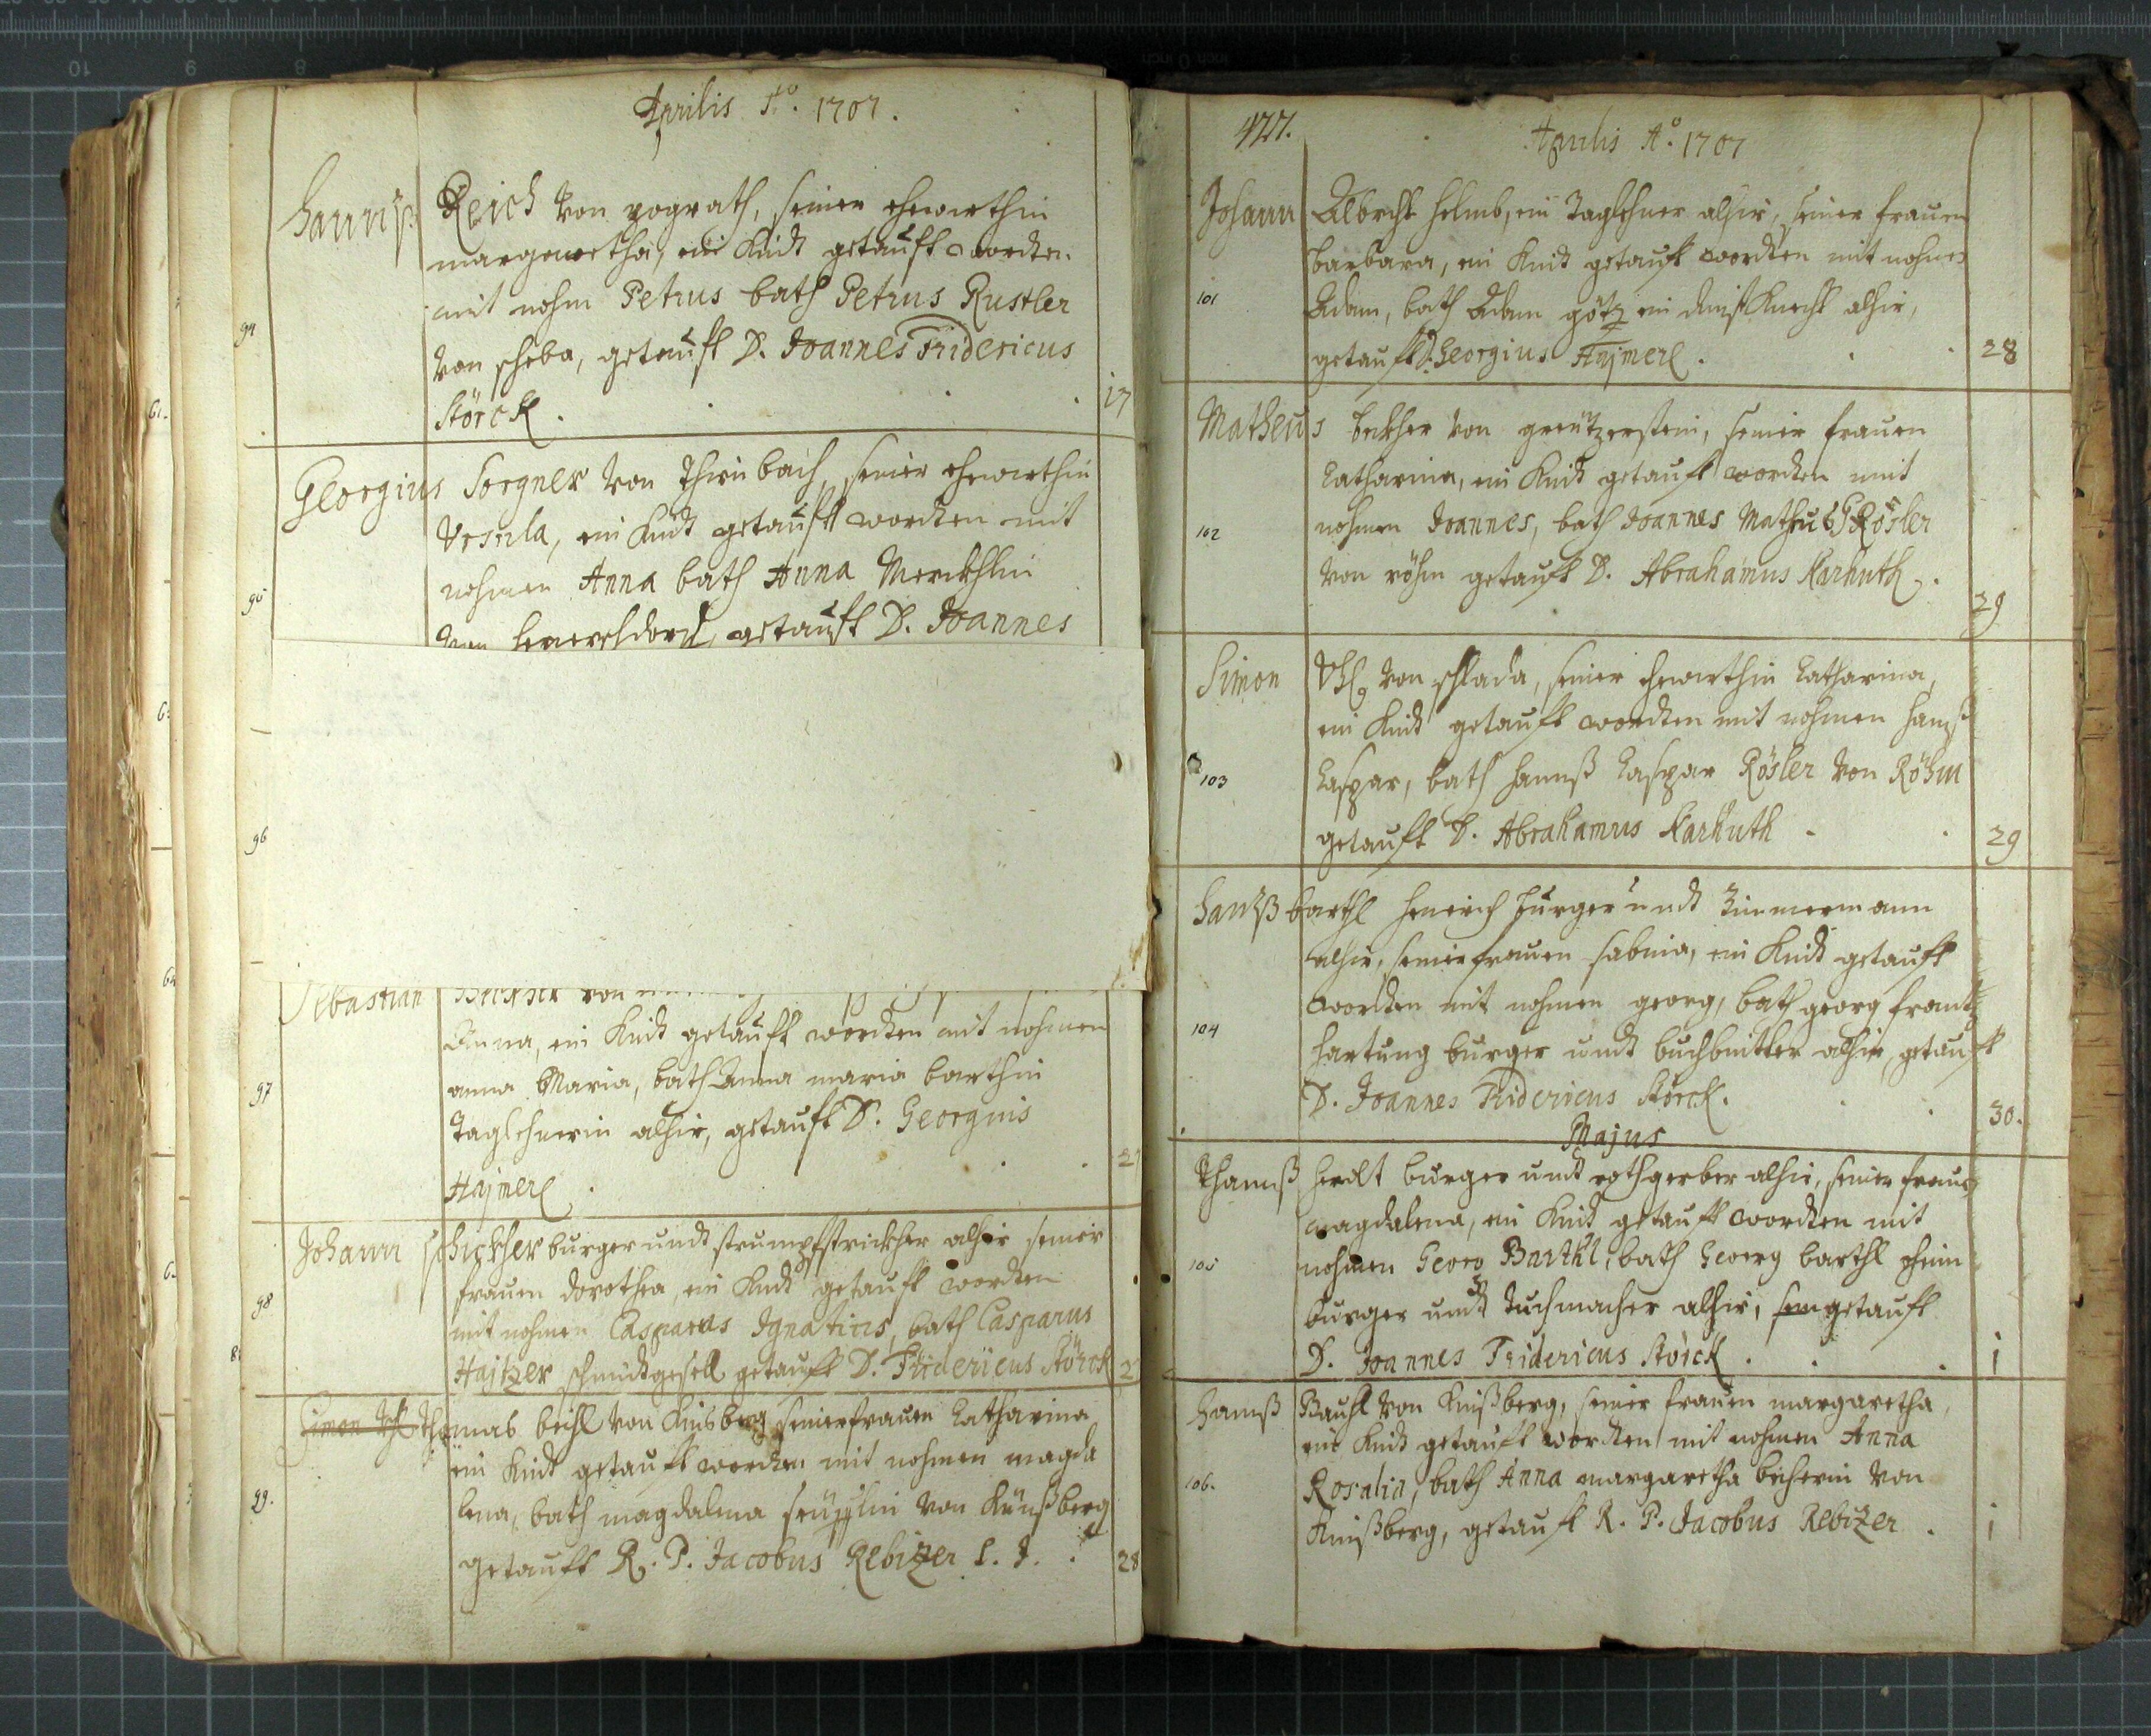 Aprilis Aº. 1707.
Hannß Reich von pograth, seiner ehewirthin
margaretha, ein Kindt getaufft worden
mit nahm Petrus bath Petrus Rustler
94
von scheba, getaufft D. Joannes Fridericus
Störck. 17
Georgius Sorgner von Thirnbach, seiner ehewirthin
Ursula, ein Kindt getaufft worden mit
nohmen Anna bath Anna
95
von getaufft D. Joannes
96
Sebastian von
Anna, ein Kindt getaufft worden mit nohmen
anna Maria, bath Anna maria barthin
97
Taglehnerin alhir, getaufft D. Georgius
Hajmerl.
Johann schickher burger undt strumpfstrickher alhir seiner
frauen dorothea, ein Kindt getaufft worden
98
mit nohmen Casparus Ignatius, bath Casparus
Hajtzer schmidtgesell getaufft D. Fridericus Störck
Simon Uhl Thomas beihl von Kinsberg seiner frauen Catharina
ein Kindt getaufft worden mit nohmen magda
99.
lena, bath magdalena von Künßberg
getaufft R. P. Jacobus Rebitzer S. J. 28
427.
Aprilis Aº. 1707
Johann Albrecht helmb, ein Taglehner alhir, seiner frauen
barbara, ein Kindt getaufft worden mit nohmen
101
Adam, bath Adam götz ein dinstKnecht alhir,
getaufft D. Georgius Hajmerl. 28
Matheus beckher von greützerstein, seiner frauen
Catharina, ein Kindt getaufft worden mit
102
nohmen Joannes, bath Joannes Matheus Rösler
von röhm getaufft D. Abrahamus Karhuth.
29
Simon Uhl von schlada, seiner ehewirthin Catharina,
ein Kindt getaufft worden mit nohmen hanß
103
Caspar, bath hannß Caspar Rösler von Röhm
getaufft D. Abrahamus Karhuth. 29
Hanß barthl heinrich burger undt Zimmermann
alhir, seiner frauen sabina, ein Kindt getaufft
worden mit nohmen georg, bath georg frantz
104
hartung burger undt buchbinter alhir, getaufft
D. Joannes Fridericus Störck. 30.
Majus
Thomß herdt burger undt rothgerber alhir, seiner frauen
magdalena, ein Kindt getaufft worden mit
105
nohmen Georg Barthl, bath Georg barthl
burger undt Tuchmacher alhir, getaufft
D. Joannes Fridericus Störck. 1
Hanß Bauhl von Kinßberg, seiner frauen margaretha,
ein Kindt getaufft worden mit nohmen Anna
106.
Rosalia, bath Anna margaretha beiherin von
Kinßberg, getaufft R. P. Jacobus Rebitzer. 1